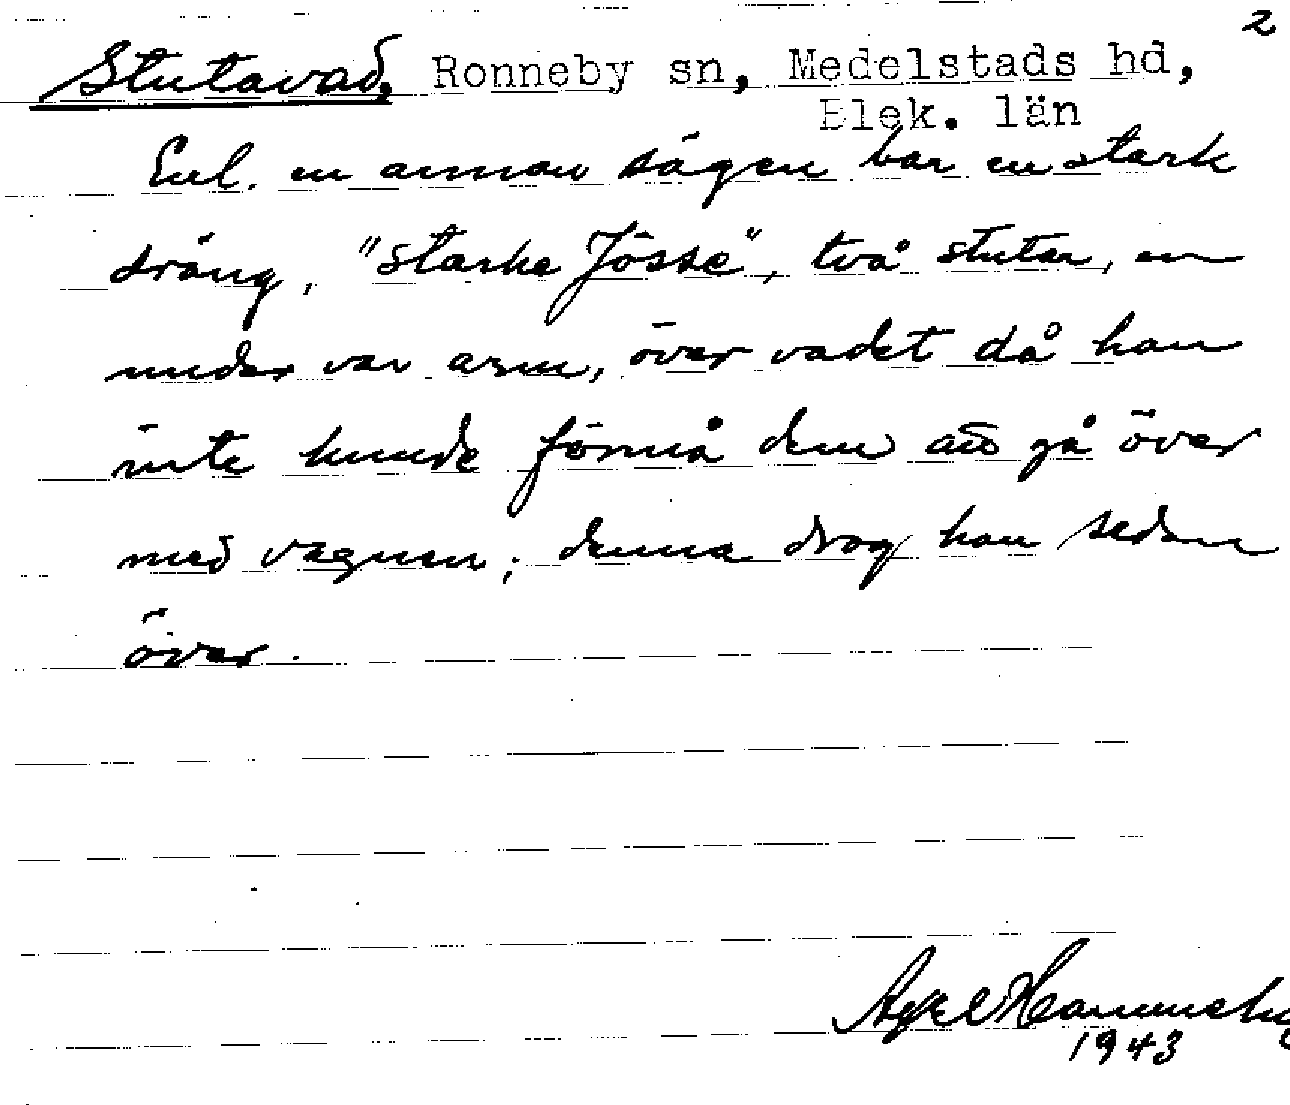 2
Stutavad, Ronneby sn, Medelstads hd,
Blek. län
Enl. en annan sägen bar en stark
dräng, "starke Jösse", två stutar, en
under var arm, över vadet då han
inte kunde förmå dem att gå över
med vagnen; denna drog han sedan
över.
Axel
1943